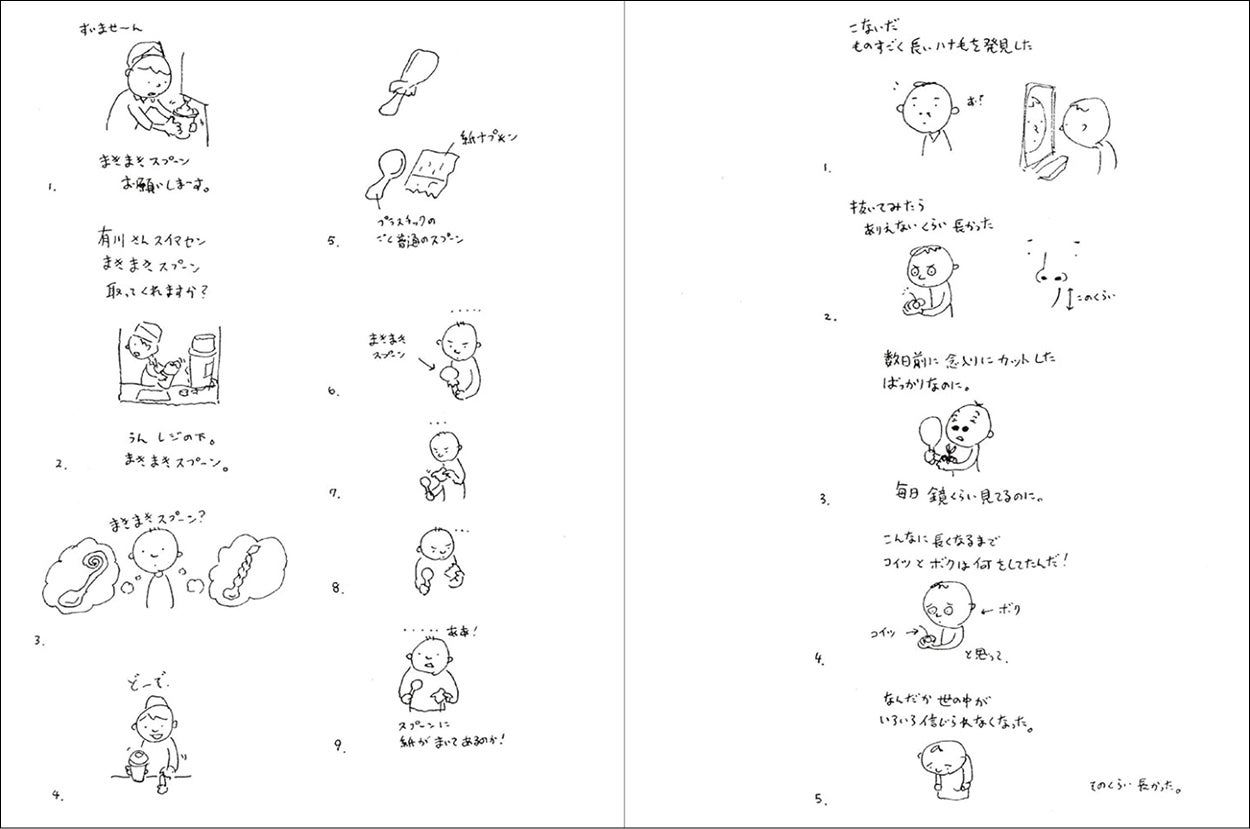 すいませーん
まきまきスプーン
お願いしまーす。
1.
有川さんスイマセン
まきまきスプーン
取ってくれますか?
うん レジの下。
まきまきスプーン。
2.
まきまきスプーン?
3.
どーぞ.
4.
紙ナプキン
プラスチックの
ごく普通のスプーン
5.
.....
まきまき
スプーン
6.
...
7.
...
8.
.....
ああ!
スプーンに
紙がまいてあるのか!
9.
こないだ
ものすごく長いハナ毛を発見した
お?
1.
抜いてみたら
ありえないくらい長かった
このくらい
2.
数日前に念入りにカットした
ばっかりなのに。
毎日鏡くらい見てるのに。
3.
こんなに長くなるまで
コイツとボクは何をしてたんだ!
←ボク
コイツ→
と思って.
4.
なんだか世の中が
いろいろ信じられなくなった。
5.
そのくらい長かった。